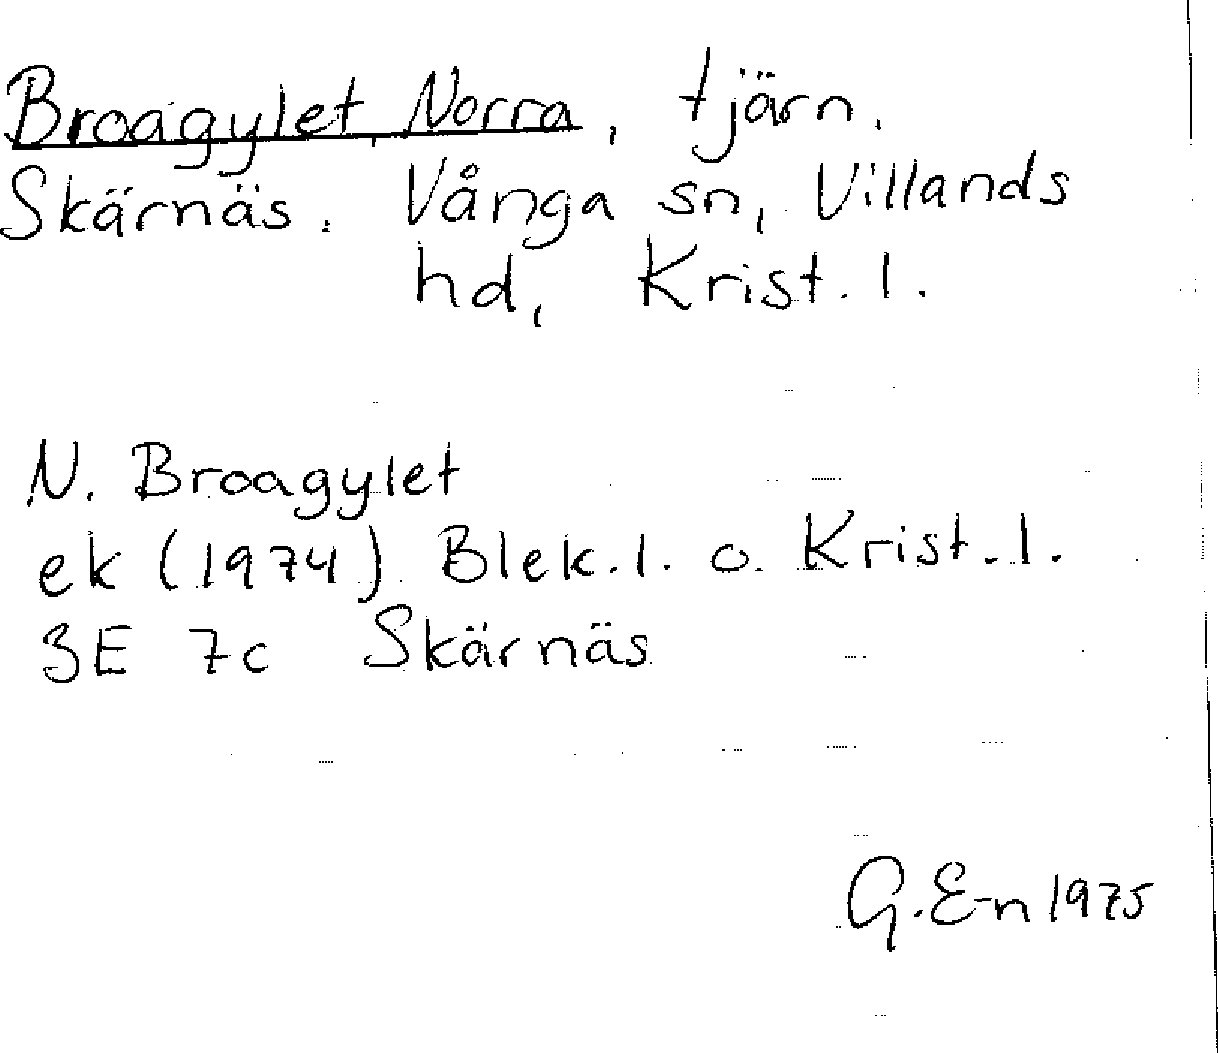 Broagylet, Norra, tjärn.
Skärnäs. Vånga sn, Villands
hd, Krist. l.
N. Broagylet
ek (1974) Blek. l. o. Krist. l.
3E 7c Skärnäs
G. E-n 1975